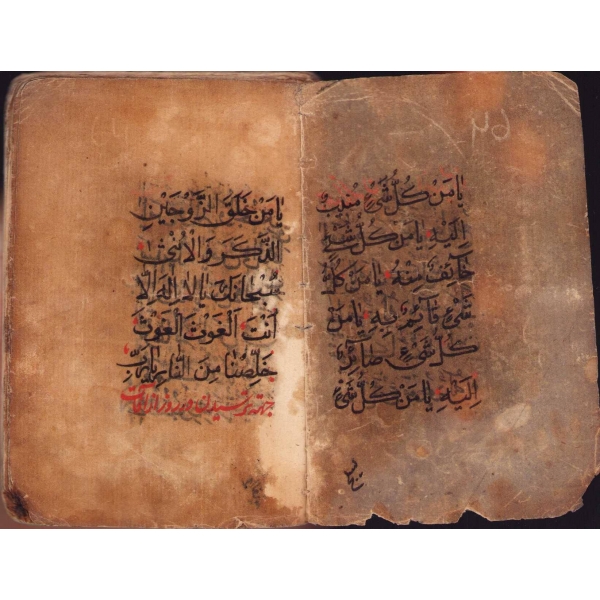 يَا مَنْ كُلُّ شَيْءٍ مُنِيبٌ
اِلَيْهِ يَا مَنْ كُلُّ شَيْءٍ
خَآئِفٌ مِنْهُ يَا مَنْ كُلُّ
شَيْءٍ قَآئِمٌ بِهِ يَا مَنْ
كُلُّ شَيْءٍ صَائِرٌ
اِلَيْهِ يَا مَنْ كُلُّ شَيْءٍ
يَا مَنْ خَلَقَ الزَّوْجَيْنِ
الذَّكَرَ وَالْاُنْثٰى
سُبْحَانَكَ يَا لَا اِلٰهَ اِلَّا
اَنْتَ اَلْغَوْثَ اَلْغَوْثَ
خَلِّصْنَا مِنَ النَّارِ يَا رَبِّ
جهة ترسیدن در روز